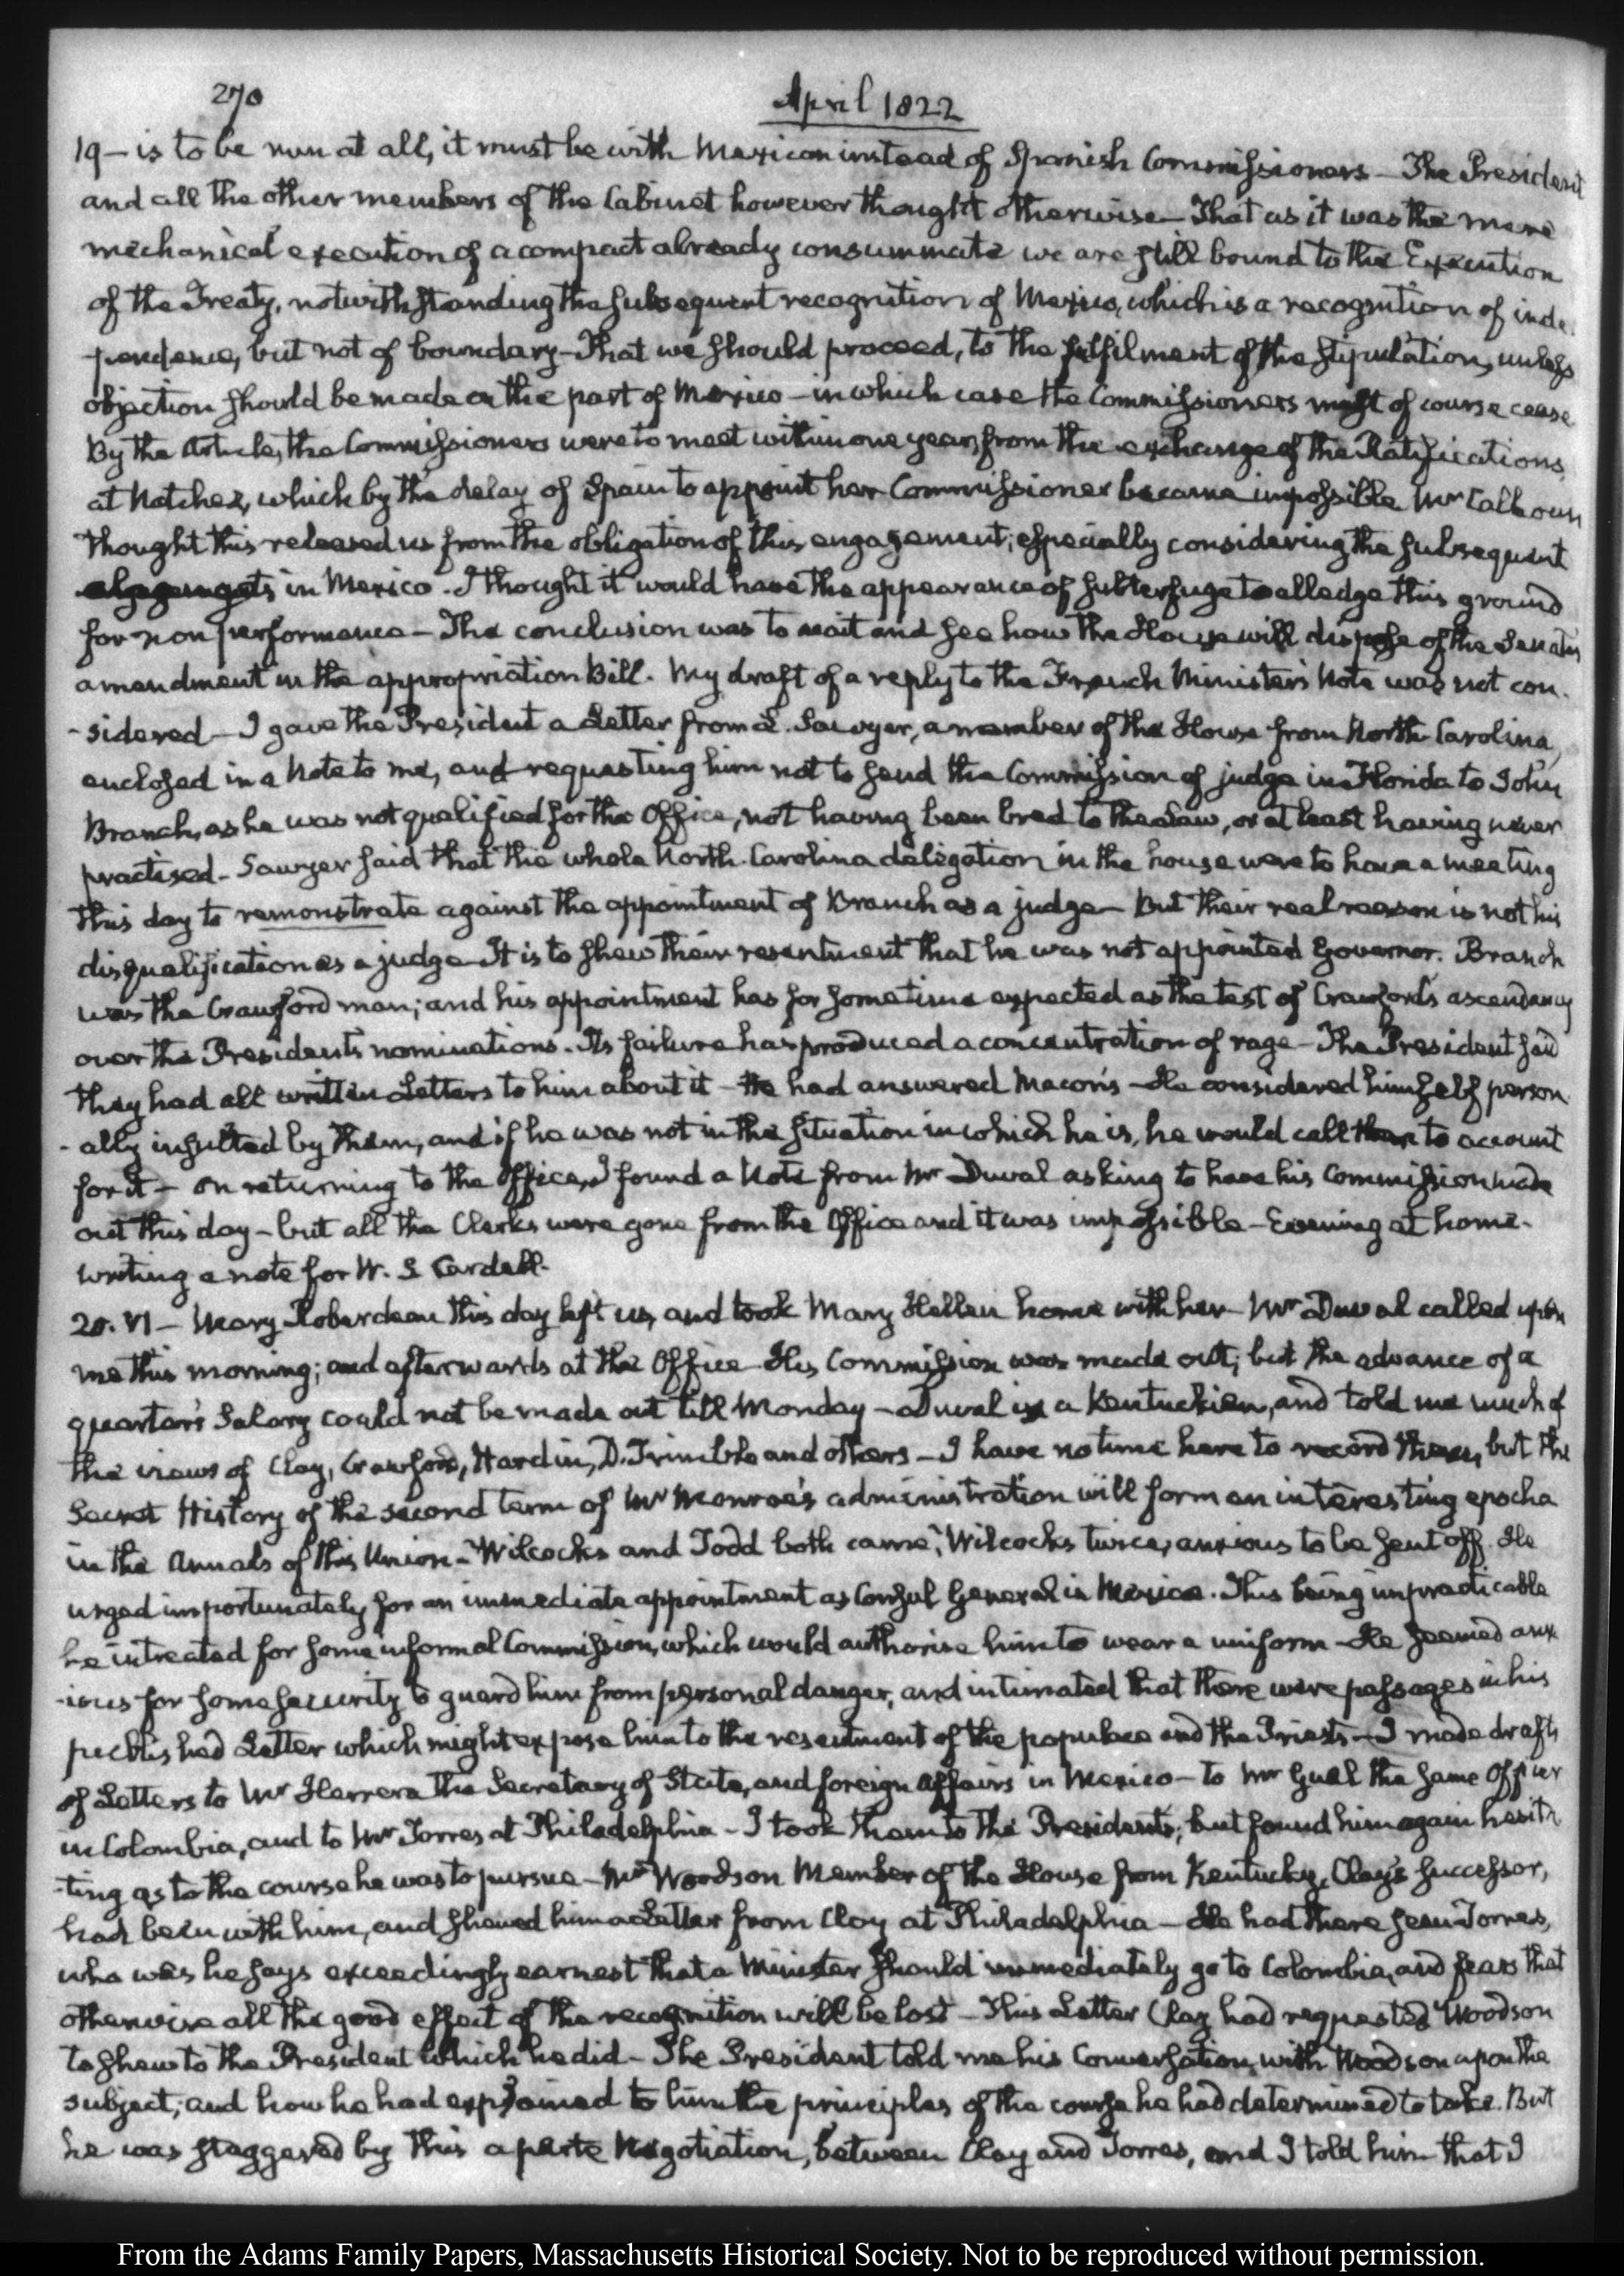 270
April 1822
19 — is to be run at all, it must be with Mexican instead of Spanish Commissioners — The President
and all the other members of the Cabinet however thought otherwise — That as it was the mere
mechanical execution of a compact already consummate we are still bound to the Execution
of the Treaty, notwithstanding the subsequent recognition of Mexico, which is a recognition of inde-
-pendence, but not of boundary — That we should proceed, to the fulfilment of the stipulation, unless
objection should be made on the part of Mexico — in which case the Commissioners must of course cease
By the Article, the Commissioners were to meet within one year, from the exchange of the Ratifications
at Natchez, which by the delay of Spain to appoint her Commissioner became impossible. Mr Calhoun
thought this released us from the obligation of this engagement; especially considering the subsequent
in Mexico. I thought it would have the appearance of subterfuge to alledge this ground
for non performance — The conclusion was to wait and see how the House will dispose of the Senate's
amendment in the appropriation Bill. My draft of a reply to the French Minister's Note was not con-
-sidered — I gave the President a Letter from L. Sawyer, a member of the House from North-Carolina,
enclosed in a Note to me, and requesting him not to send the Commission of judge in Florida to John
Branch, as he was not qualified for the Office, not having been bred to the Law, or at least having never
practised — Sawyer said that the whole North-Carolina delegation in the house were to have a meeting
this day to remonstrate against the appointment of Branch as a judge — But their real reason is not his
disqualification as a judge — It is to shew their resentment that he was not appointed Governor. Branch
was the Crawford man; and his appointment has for sometime expected as the test of Crawford's ascendancy
over the President's nominations. Its failure has produced a concentration of rage — The President said
they had all written Letters to him about it — He had answered Macon's — He considered himself person-
-ally insulted by them, and if he was not in the situation in which he is, he would call them to account
for it — On returning to the Office, I found a Note from Mr Duval asking to have his Commission made
out this day — but all the Clerks were gone from the Office and it was impossible — Evening at home.
writing a note for W. S. Cardell.
20. VI — Mary Roberdeau this day left us, and took Mary Hellen home with her — Mr Duval called upon
me this morning; and afterwards at the Office — His Commission was made out; but the advance of a
quarter's Salary could not be made out till Monday — Duval is a Kentuckian, and told me much of
the views of Clay, Crawford, Hardin, D. Trimble and others — I have no time here to record them, but the
Secret History of the second term of Mr Monroe's administration will form an interesting epocha
in the Annals of this Union — Wilcocks and Todd both came; Wilcocks twice, anxious to be sent off. He
urged importunately for an immediate appointment as Consul General in Mexico. This being impracticable
he intreated for some informal Commission, which would authorise him to wear a uniform — He seemed anx-
-ious for some security to guard him from personal danger, and intimated that there were passages in his
published Letter which might expose him to the resentment of the populace and the Priests — I made drafts
of Letters to Mr Herrera the Secretary of State, and foreign Affairs in Mexico — to Mr Gual the same Officer
in Colombia, and to Mr Torres at Philadelphia — I took them to the President's; but found him again hesita-
-ting as to the course he was to pursue — Mr Woodson Member of the House from Kentucky, Clay's successor,
had been with him, and shewed him a Letter from Clay at Philadelphia — He had there seen Torres,
who was he says exceedingly earnest that a Minister should immediately go to Colombia, and fears that
otherwise all the good effect of the recognition will be lost — This Letter Clay had requested Woodson
to shew to the President which he did — The President told me his Conversation with Woodson upon the
subject; and how he had explained to him the principles of the course he had determined to take. But
he was staggered by this aparte Negotiation, between Clay and Torres, and I told him that I
From the Adams Family Papers, Massachusetts Historical Society. Not to be reproduced without permission.